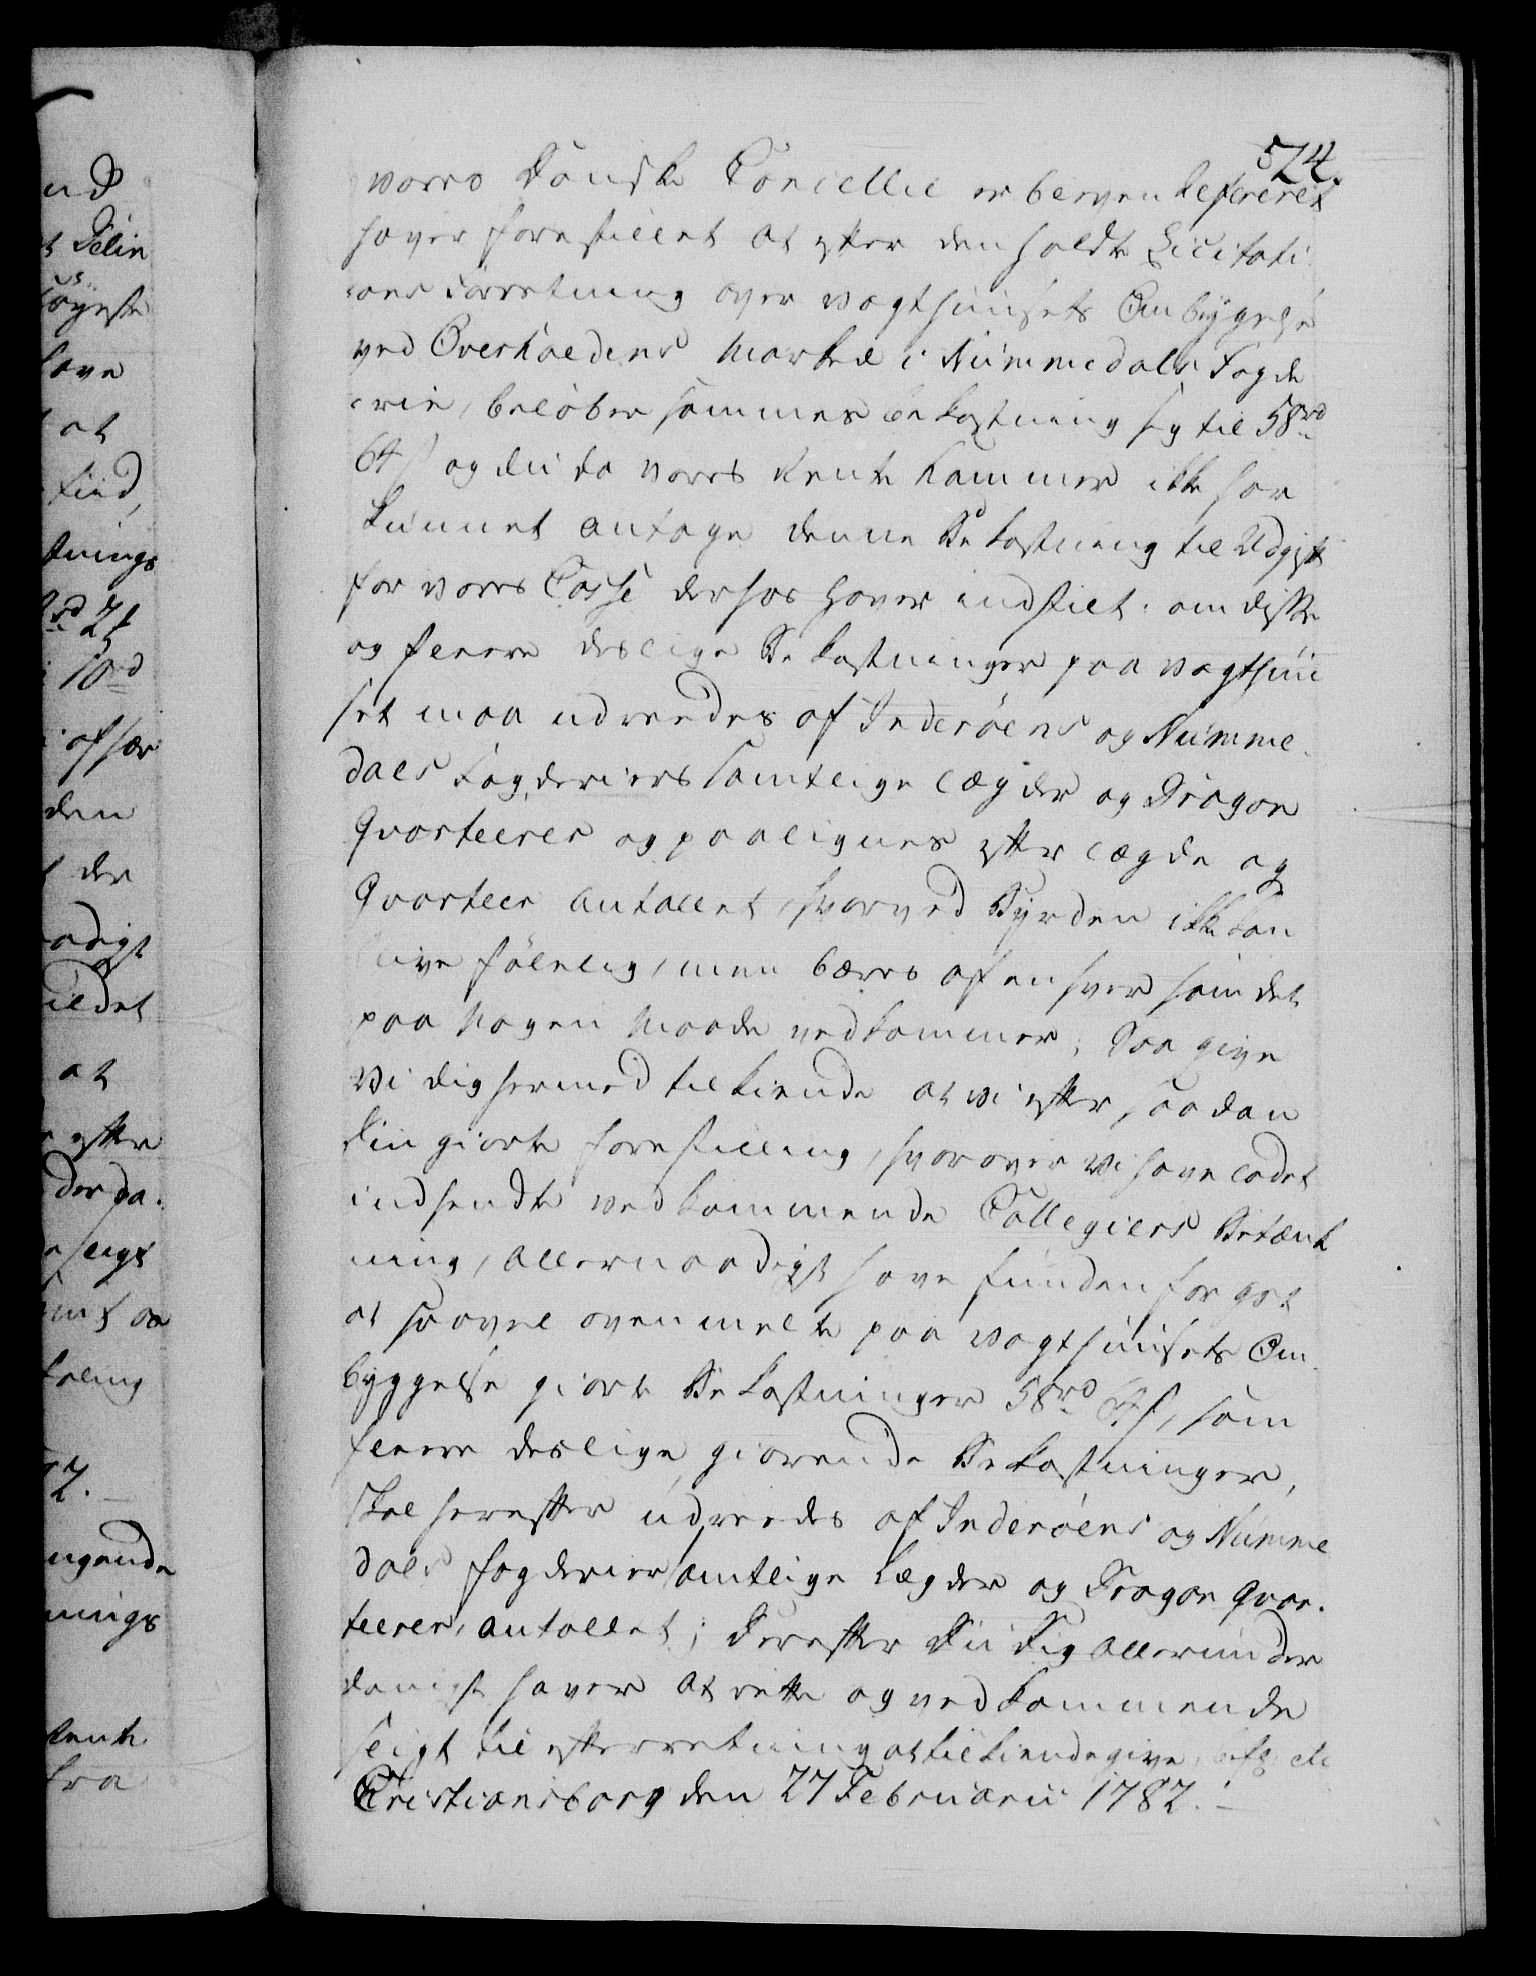 524.
vores Danske Cancellie er bleven Refereret
haver forestillet at efter den holdte Licitati
ons Forretning over vagthuusets Ombygelse
ved Overhaldens Marked i Nummedals Fogde
erie, beløber sammes bekostning sig til 58rd
64s og du da vores Rente Kammer ikke har
kunnet antage denne Bekostning til Udgift
for vores Casse derhos haver indstilt: om disse
og flere deslige Bekostninger paa vagthuu
set maa udreedes af Inderøens og Numme
dals Fogderiers samtlige lægder og Dragon
Qvarteerer og paalignes efter lægde og
Qvarteer Antallet, hvorved Byrden ikke kan
blive følelig, men bæres af enhver som det
paa Nogen Maade vedkommer; Saa give
Vi dig hermed tilkiende at vi efter saadan
Din giorte forestilling, hvorover vi have ladet
indhendte vedkommende Collegiers Betænk
ning, Allernaadigst have funden for got
at saavel ovenmelte paa vagthuusets Om
byggelse giorte Bekostninger 58rd 64s, som
flere deslige giørende Bekostninger,
skal herefter udreedes af Inderøens og Numme
dals fogderier samtlige Lægder og Dragon Qvar
teerer, antallet; Derefter Du Dig allerunder
danigst haver at rette og vedkommende
sligt til efterretning at tilkiendegive,
Christiansborg den 27 Februarii 1782.